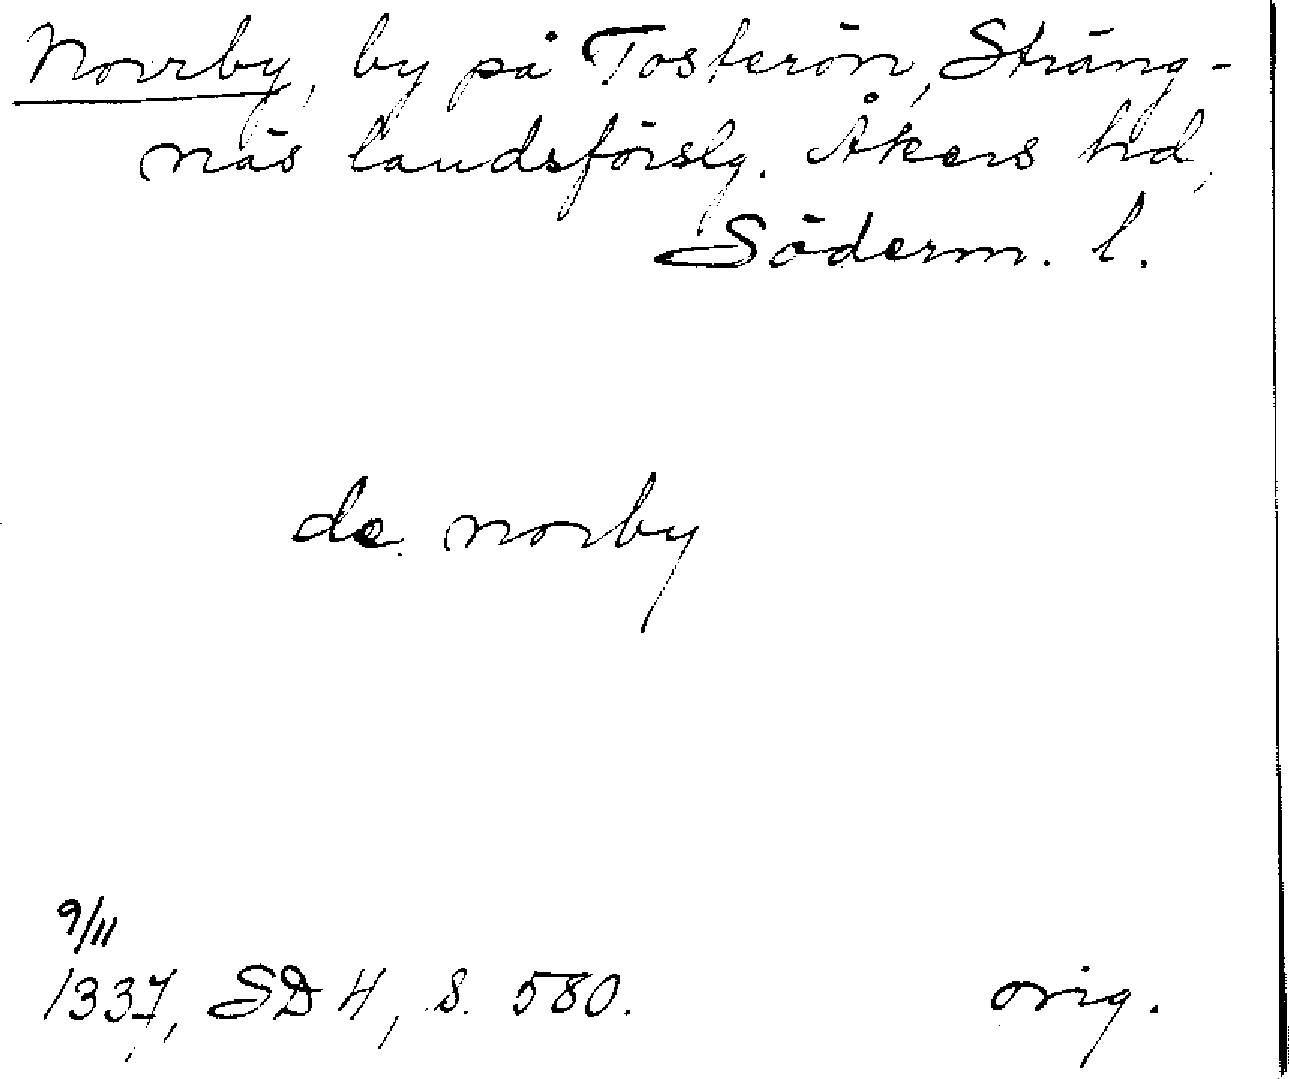 Norrby, by på Tosterön, Sträng-
näs landsförslg. Åkers hd,
Söderm. l.
de norby
9/11
1337, SD 4, s. 580.
orig.